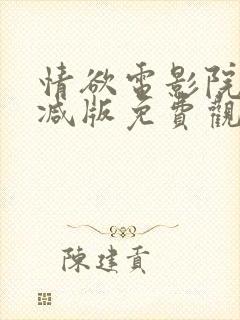 情欲電影院
减版免費觀
陳建貢